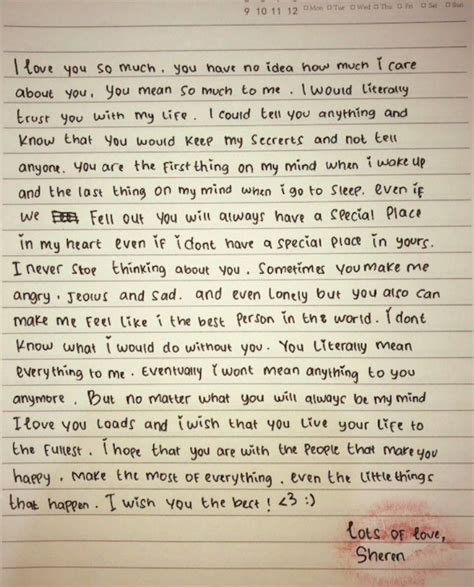 9 10 11 12 Mon Tue Wed Thu Fri Sat Sun
I love you so much. you have no idea how much i care
about you. you mean so much to me. I would literally
trust you with my life. I could tell you anything and
know that you would keep my secrerts and not tell
anyone. you are the first thing on my mind when i wake up
and the last thing on my mind when i go to sleep. even if
we fell out you will always have a special place
in my heart even if i dont have a special place in yours.
I never stop thinking about you. Sometimes you make me
angry, jeolus and sad. and even lonely but you also can
make me feel like i the best person in the world. i dont
know what i would do without you. You literally mean
everything to me. Eventually i wont mean anything to you
anymore. But no matter what you will always be my mind
I love you loads and i wish that you live your life to
the fullest. i hope that you are with the people that make you
happy. make the most of everything. even the little things
that happen. I wish you the best! <3 :)
lots of love,
Sheren